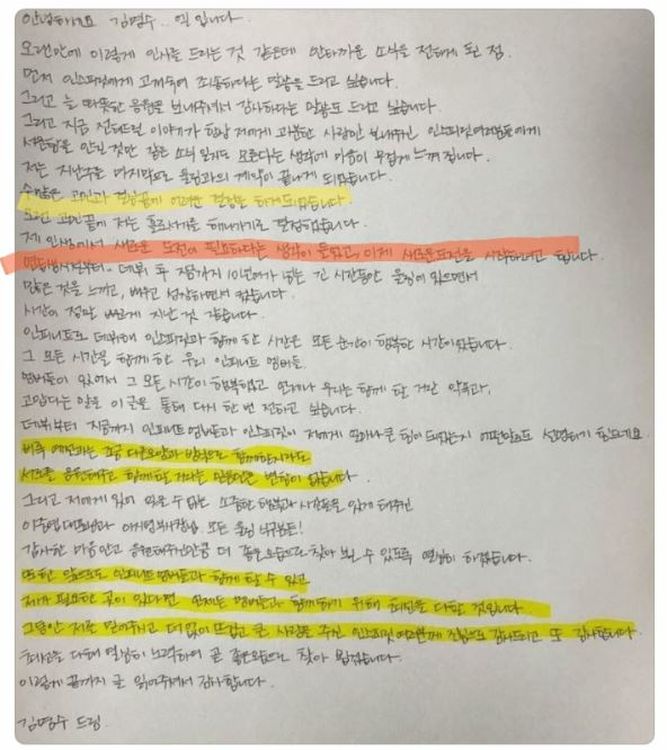 안녕하세요 김명수.. 엘 입니다.
오랜만에 이렇게 인사를 드리는 것 같은데 안타까운 소식을 전하게 된 점.
먼저 인스피릿에게 고개숙여 죄송하다는 말씀을 드리고 싶습니다.
그리고 늘 따뜻한 응원을 보내주셔서 감사하다는 말씀도 드리고 싶습니다.
그리고 지금 전해드릴 이야기가 항상 저에게 과분한 사랑만 보내주신 인스피릿여러분들에게
서운함을 안길 것만 같은 소식 일지도 모른다는 생각에 마음이 무겁게 느껴집니다.
저는 지난주를 마지막으로 울림과의 계약이 끝나게 되었습니다.
수많은 고민과 결정끝에 어려운 결정을 하게되었습니다
오랜 고민끝에 저는 홀로서기를 해나가기로 결정했습니다.
제 인생에서 새로운 도전이 필요하다는 생각이 들었고, 이제 새로운도전을 시작하려고 합니다.
연습생시절부터.. 데뷔 후 지금까지 10년여가 넘는 긴 시간동안 울림에 있으면서
많은 것을 느끼고, 배우고 성장하면서 컸습니다.
시간이 정말 빠르게 지난 것 같습니다.
인피니트로 데뷔해 인스피릿과 함께 한 시간은 모든 순간이 행복한 시간이었습니다.
그 모든 시간을 함께 한 우리 인피니트 멤버들.
멤버들이 있어서 그 모든 시간이 행복했고 언제나 우리는 함께 할 거란 약속과,
고맙다는 말을 이 글을 통해 다시 한 번 전하고 싶습니다.
데뷔부터 지금까지 인피니트멤버들과 인스피릿이 저에게 얼마나 큰 힘이 되었는지 어떤말로도 설명하기 힘드네요.
비록 예전과는 조금 다른모양과 방식으로 함께하겠지만
서로를 응원해주고 함께할 거라는 믿음만은 변함이 없습니다.
그리고 저에게 있어 잊을 수 없는 소중한 행복과 시간들을 있게 해주신
이중엽대표님과 이기영부사장님 모든 울림 식구분들!
감사한 마음안고 응원해주신만큼 더 좋은모습으로 찾아 뵐 수 있도록 열심히 하겠습니다.
또한 앞으로도 인피니트멤버들과 함께 할 수 있고
제가 필요한 곳이 있다면 언제든 멤버들과 함께하기 위해 최선을 다할 것입니다
그동안 저를 믿어주시고 더없이 뜨겁고 큰 사랑을 주신 인스피릿여러분께 진심으로 감사드리고 또 감사합니다.
최선을 다해 열심히 노력하여 곧 좋은모습으로 찾아 뵙겠습니다.
이렇게 끝까지 글 읽어주셔서 감사합니다.
김명수 드림.